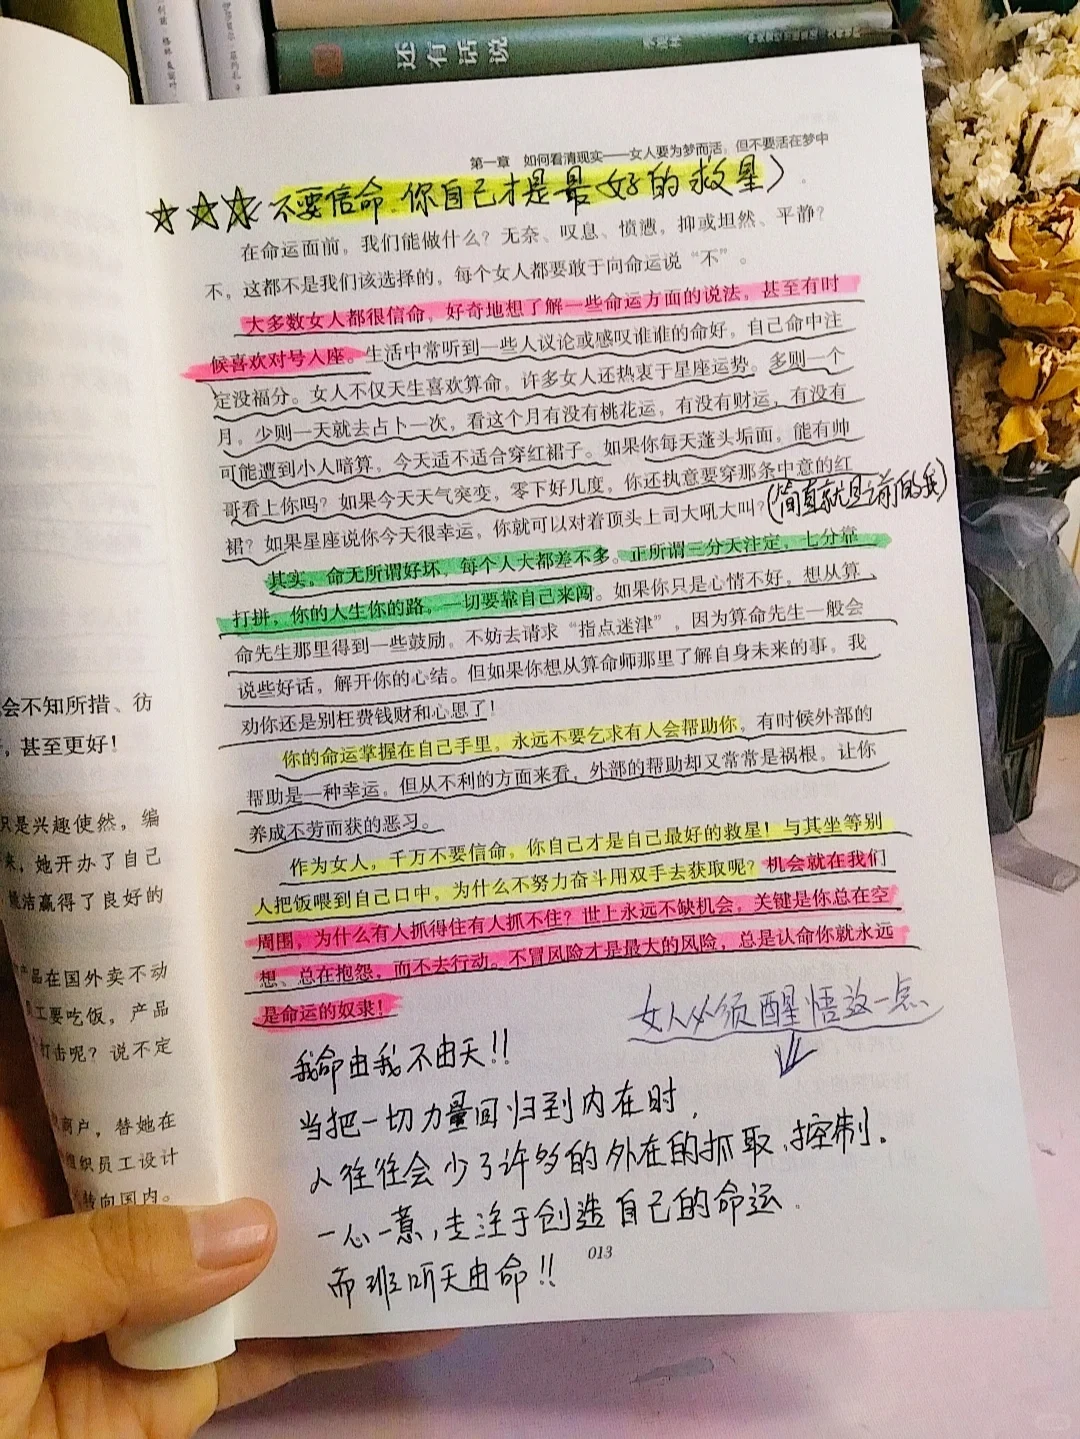 还有话说
第一章 如何看清现实——女人要为梦而活，但不要活在梦中
☆☆☆〈不要信命、你自己才是最好的救星〉
在命运面前，我们能做什么？无奈、叹息、愤懑，抑或坦然、平静？
不，这都不是我们该选择的，每个女人都要敢于向命运说“不”。
大多数女人都很信命，好奇地想了解一些命运方面的说法，甚至有时
候喜欢对号入座。生活中常听到一些人议论或感叹谁谁的命好，自己命中注
定没福分。女人不仅天生喜欢算命，许多女人还热衷于星座运势。多则一个
月，少则一天就去占卜一次，看这个月有没有桃花运，有没有财运，有没有
可能遭到小人暗算，今天适不适合穿红裙子。如果你每天蓬头垢面，能有帅
哥看上你吗？如果今天天气突变，零下好几度，你还执意要穿那条中意的红
裙？如果星座说你今天很幸运，你就可以对着顶头上司大吼大叫？
(简直就是之前的我)
其实，命无所谓好坏，每个人大都差不多。正所谓三分天注定，七分靠
打拼，你的人生你的路。一切要靠自己来闯。如果你只是心情不好，想从算
命先生那里得到一些鼓励，不妨去请求“指点迷津”，因为算命先生一般会
说些好话，解开你的心结。但如果你想从算命师那里了解自身未来的事，我
劝你还是别枉费钱财和心思了！
你的命运掌握在自己手里，永远不要乞求有人会帮助你，有时候外部的
帮助是一种幸运，但从不利的方面来看，外部的帮助却又常常是祸根。让你
养成不劳而获的恶习。
作为女人，千万不要信命，你自己才是自己最好的救星！与其坐等别
人把饭喂到自己口中，为什么不努力奋斗用双手去获取呢？机会就在我们
周围，为什么有人抓得住有人抓不住？世上永远不缺机会，关键是你总在空
想、总在抱怨，而不去行动。不冒风险才是最大的风险，总是认命你就永远
是命运的奴隶！
女人必须醒悟这一点、
我命由我不由天!!
当把一切力量回归到内在时，
人往往会少了许多的外在的抓取、控制。
一心一意，专注于创造自己的命运
而非听天由命!!
013
会不知所措、彷
，甚至更好！
只是兴趣使然，编
来，她开办了自己
洁赢得了良好的
产品在国外卖不动
员工要吃饭，产品
打击呢？说不定
商户，替她在
组织员工设计
转向国内。